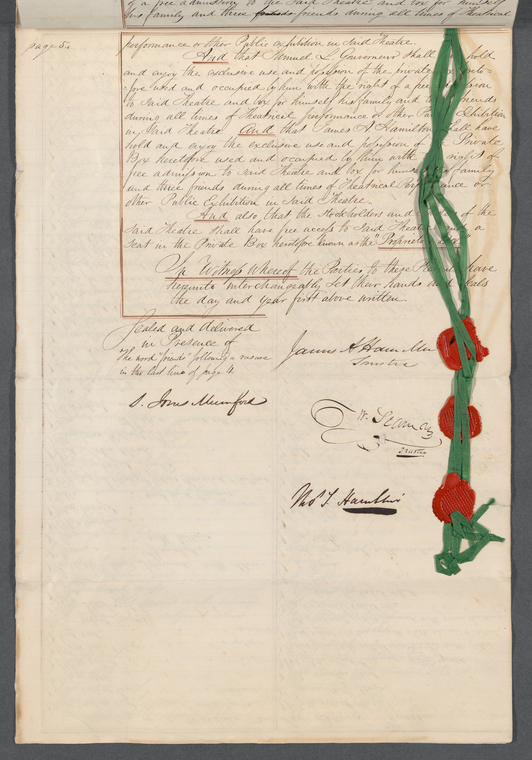 of a free admission to the Said Theatre and box for himself
his family and three friends during all times of theatrical
page 5.
performance or other Public exhibition in said Theatre.
And that Samuel L. Gouverneur shall hold
and enjoy the exclusive use and possession of the private
fore used and occupied by him with the right of a free
to Said Theatre and box for himself his family and
during all times of Theatrical performance or other Exhibition
in Said Theatre. And that James A Hamilton shall have
hold and enjoy the exclusive use and possession of Private
Box heretofore used and occupied by him with right of
free admission to Said Theatre and box for family
and three friends during all times of Theatrical Performance or
other Public Exhibition in Said Theatre.
And also, that the Stockholders and of the
Said Theatre shall have free access to Said Theatre and a
Seat in the Private Box heretofore known as the "
In Witness Whereof the Parties to these have
hereunto interchangeably set their hands and Seals
the day and year first above written.
Sealed and delivered
in Presence of
The word "friends" following erasure
in the last line of page 4.
James A Hamilton
Trustee
S. Jones Mumford
Wm. Seaman
Trustee
Thos S Hamblin